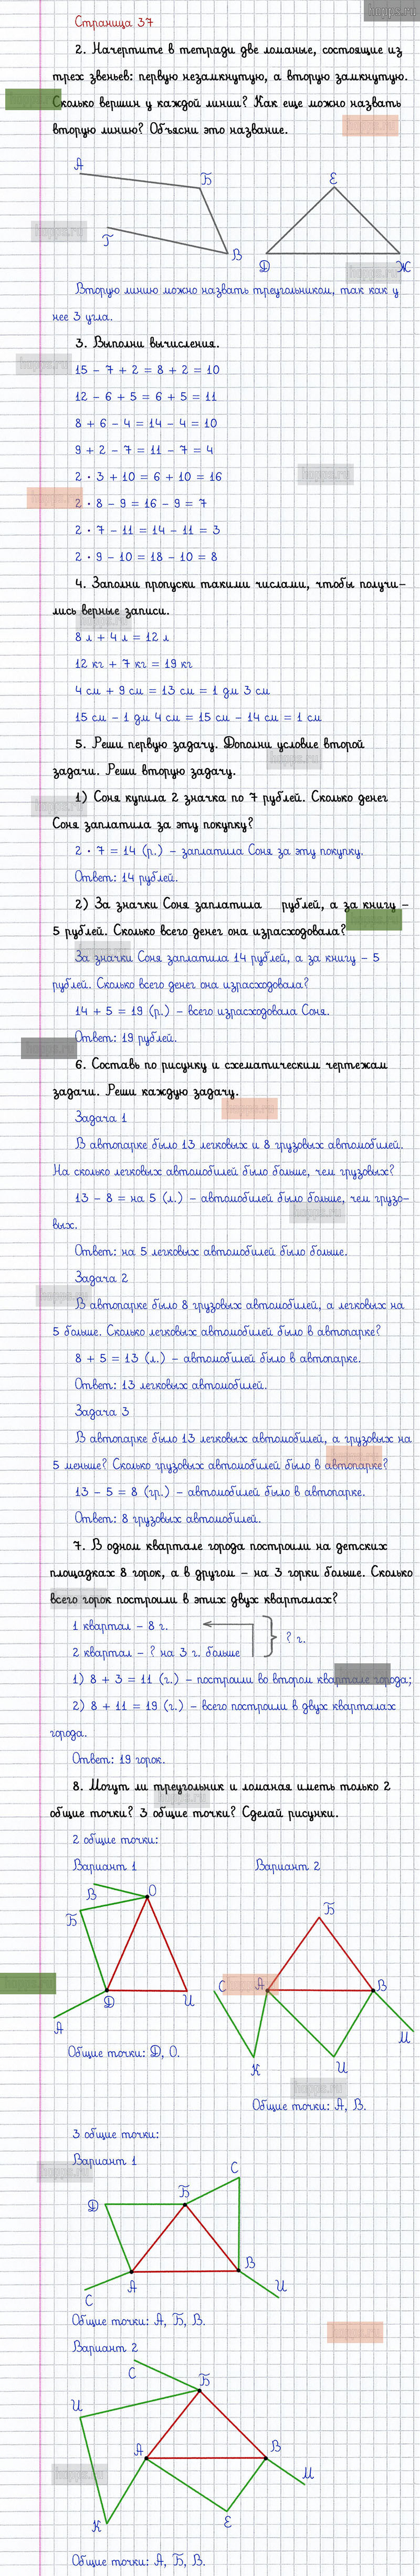 hoyps.ru
Страница 37
2. Начертите в тетради две ломаные, состоящие из
трех звеньев: первую незамкнутую, а вторую замкнутую.
Сколько вершин у каждой линии? Как еще можно назвать
вторую линию? Объясни это название.
А
Б
Е
Г
В
Д
Ж
Вторую линию можно назвать треугольником, так как у
нее 3 угла.
3. Выполни вычисления.
15 – 7 + 2 = 8 + 2 = 10
12 – 6 + 5 = 6 + 5 = 11
8 + 6 – 4 = 14 – 4 = 10
9 + 2 – 7 = 11 – 7 = 4
2 · 3 + 10 = 6 + 10 = 16
2 · 8 – 9 = 16 – 9 = 7
2 · 7 – 11 = 14 – 11 = 3
2 · 9 – 10 = 18 – 10 = 8
4. Заполни пропуски такими числами, чтобы получи–
лись верные записи.
8 л + 4 л = 12 л
12 кг + 7 кг = 19 кг
4 см + 9 см = 13 см = 1 дм 3 см
15 см – 1 дм 4 см = 15 см – 14 см = 1 см
5. Реши первую задачу. Дополни условие второй
задачи. Реши вторую задачу.
1) Соня купила 2 значка по 7 рублей. Сколько денег
Соня заплатила за эту покупку?
2 · 7 = 14 (р.) – заплатила Соня за эту покупку.
Ответ: 14 рублей.
2) За значки Соня заплатила рублей, а за книгу –
5 рублей. Сколько всего денег она израсходовала?
За значки Соня заплатила 14 рублей, а за книгу – 5
рублей. Сколько всего денег она израсходовала?
14 + 5 = 19 (р.) – всего израсходовала Соня.
Ответ: 19 рублей.
6. Составь по рисунку и схематическим чертежам
задачи. Реши каждую задачу.
Задача 1
В автопарке было 13 легковых и 8 грузовых автомобилей.
На сколько легковых автомобилей было больше, чем грузовых?
13 – 8 = на 5 (л.) – автомобилей было больше, чем грузо–
вых.
Ответ: на 5 легковых автомобилей было больше.
Задача 2
В автопарке было 8 грузовых автомобилей, а легковых на
5 больше. Сколько легковых автомобилей было в автопарке?
8 + 5 = 13 (л.) – автомобилей было в автопарке.
Ответ: 13 легковых автомобилей.
Задача 3
В автопарке было 13 легковых автомобилей, а грузовых на
5 меньше? Сколько грузовых автомобилей было в автопарке?
13 – 5 = 8 (гр.) – автомобилей было в автопарке.
Ответ: 8 грузовых автомобилей.
7. В одном квартале города построили на детских
площадках 8 горок, а в другом – на 3 горки больше. Сколько
всего горок построили в этих двух кварталах?
1 квартал – 8 г.
? г.
2 квартал – ? на 3 г. больше
1) 8 + 3 = 11 (г.) – построили во втором квартале города;
2) 8 + 11 = 19 (г.) – всего построили в двух кварталах
города.
Ответ: 19 горок.
8. Могут ли треугольник и ломаная иметь только 2
общие точки? 3 общие точки? Сделай рисунки.
2 общие точки:
Вариант 1 Вариант 2
В
О
Б
Д
И
А
Б
С
А
В
М
К
И
Общие точки: Д, О.
Общие точки: А, В.
3 общие точки:
Вариант 1
С
Д
Б
В
А
И
С
Общие точки: А, Б, В.
Вариант 2
С
Б
И
А
В
М
К
Е
Общие точки: А, Б, В.